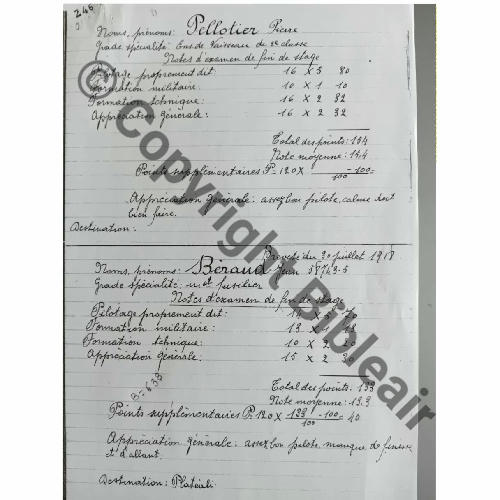 246
Noms, prénoms: Pellotier Pierre
Grade spécialité: Ens de Vaisseau de 2e classe
Notes d'examen de fin de stage
Pilotage proprement dit: 16 X 5 80
Formation militaire: 10 X 1 10
Formation technique: 16 X 2 32
Appréciation générale: 16 X 2 32
Total des points: 154
Note moyenne: 15,4
Points supplémentaires P = 120 X - 100 =
100
Appréciation générale: assez bon pilote, calme doit
bien faire.
Destination:
Brevet du 30 juillet 1918
Noms, prénoms: Béraud Jean
Grade spécialité: m.ot fusilier
Notes d'examen de fin de stage
Pilotage proprement dit:
Formation militaire: 13
Formation technique: 10 X 2 20
Appréciation générale: 15 X 2 30
Total des points: 133
Note moyenne: 13.3
Points supplémentaires P = 120 X 133 - 100 = 40
100
Appréciation générale: assez bon pilote, manque de finesse
et d'allant.
Destination:
© Copyright Bibleair